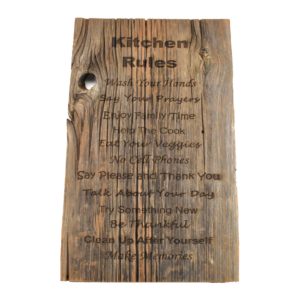 Kitchen
Rules
Wash Your Hands
Say Your Prayers
Enjoy Family Time
Help The Cook
Eat Your Veggies
No Cell Phones
Say Please and Thank You
Talk About Your Day
Try Something New
Be Thankful
Clean Up After Yourself
Make Memories